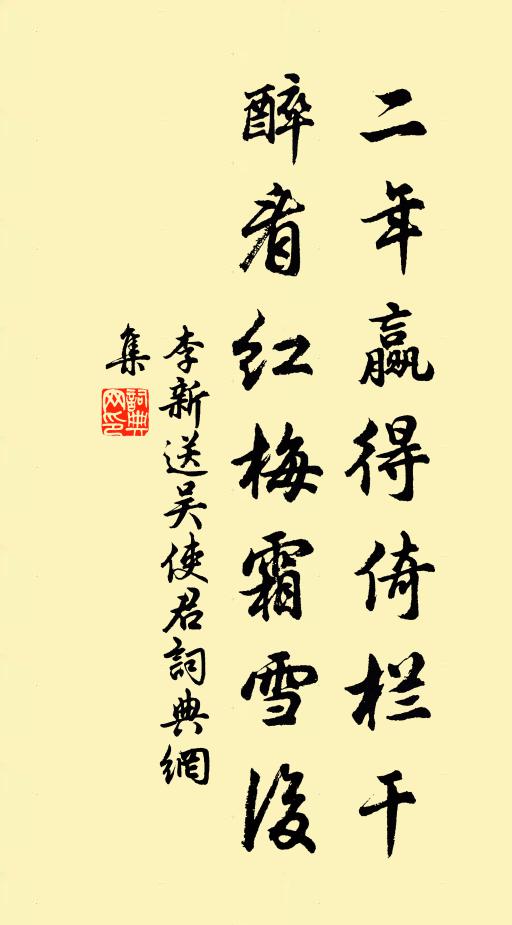 二年赢得倚栏干
醉看红梅霜雪後
李新送吴使君詞典網
集
詞典网印